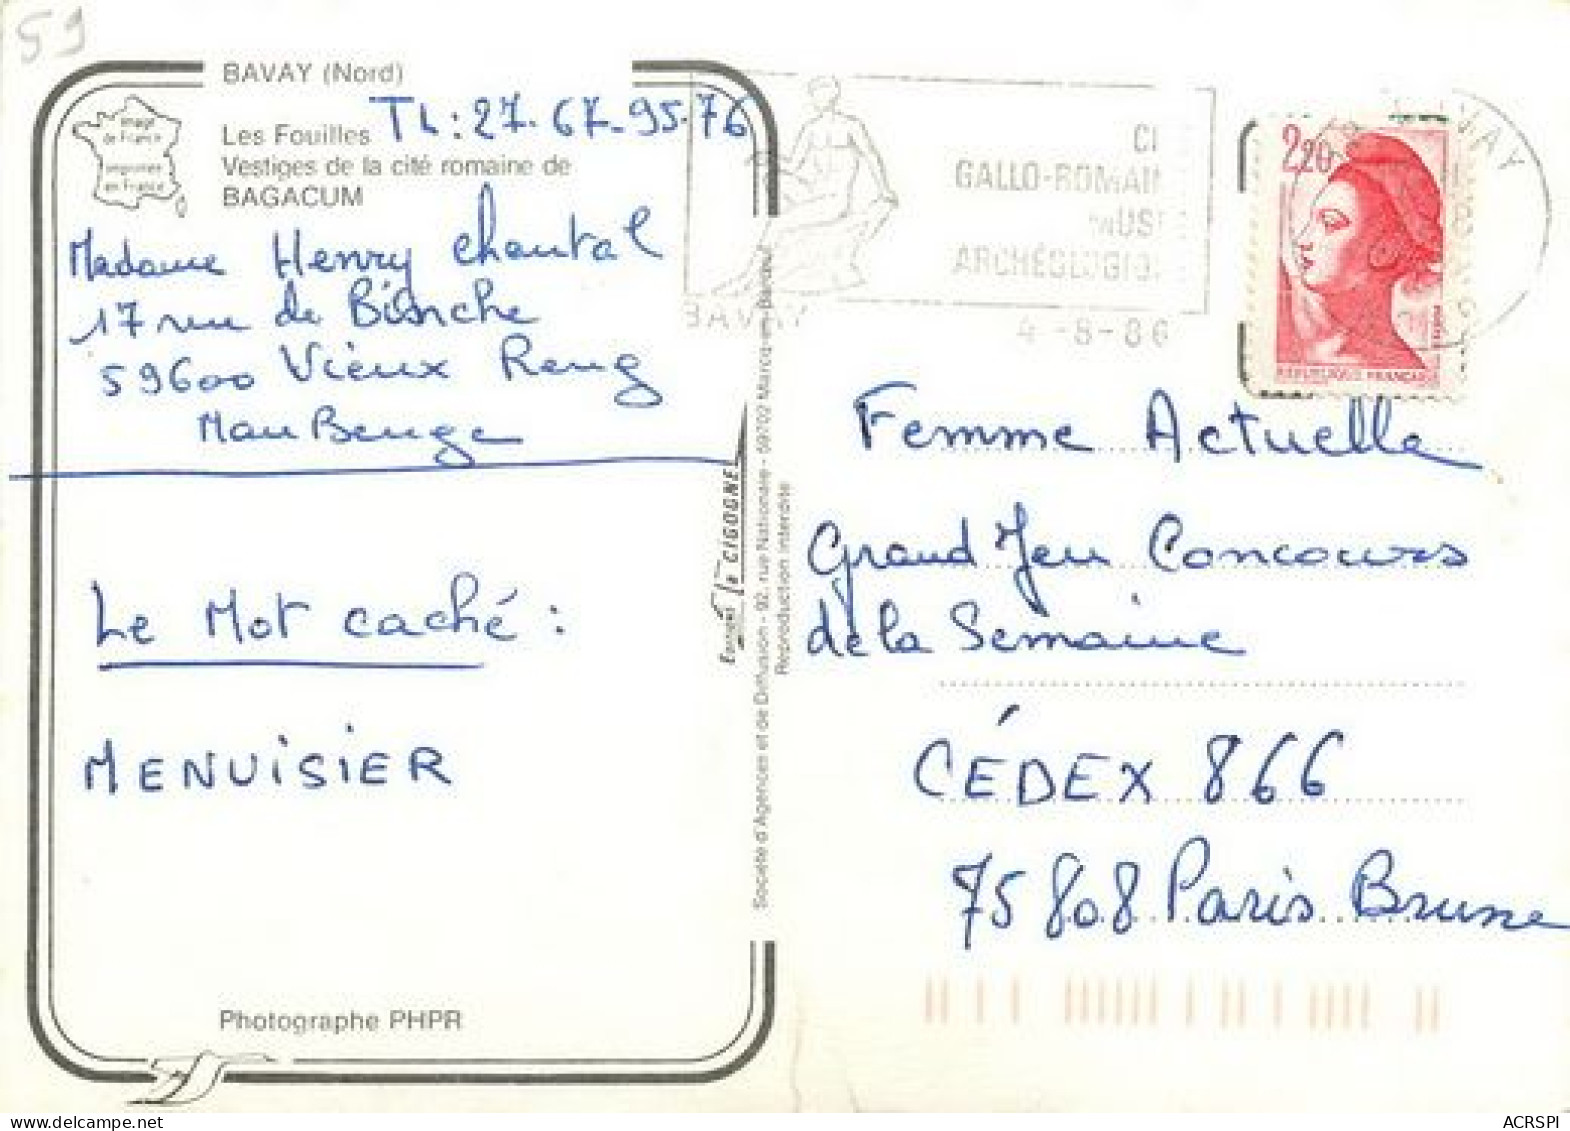 59
BAVAY (Nord)
image
de France
imprimée
en France
Les Fouilles
Vestiges de la cité romaine de
BAGACUM
TL: 27.67-95.76
Madame Henry Chantal
17 rue de Binche
59600 Vieux Reng
MauBeuge
Le Mot caché :
MENUISIER
Photographe PHPR
CIGOGNE
Société d'Agences et de Diffusion - 92, rue Nationale - 59702 Marcq-en-Barœul
Reproduction interdite
GALLO-ROMAIN
MUS
ARCHÉOLOGIQ
BAVAY
4-8-86
2,20
REPUBLIQUE FRANÇAISE
Femme Actuelle
Grand Jeu Concours
de la Semaine
CÉDEX 866
75808 Paris Brune
ACRSPI